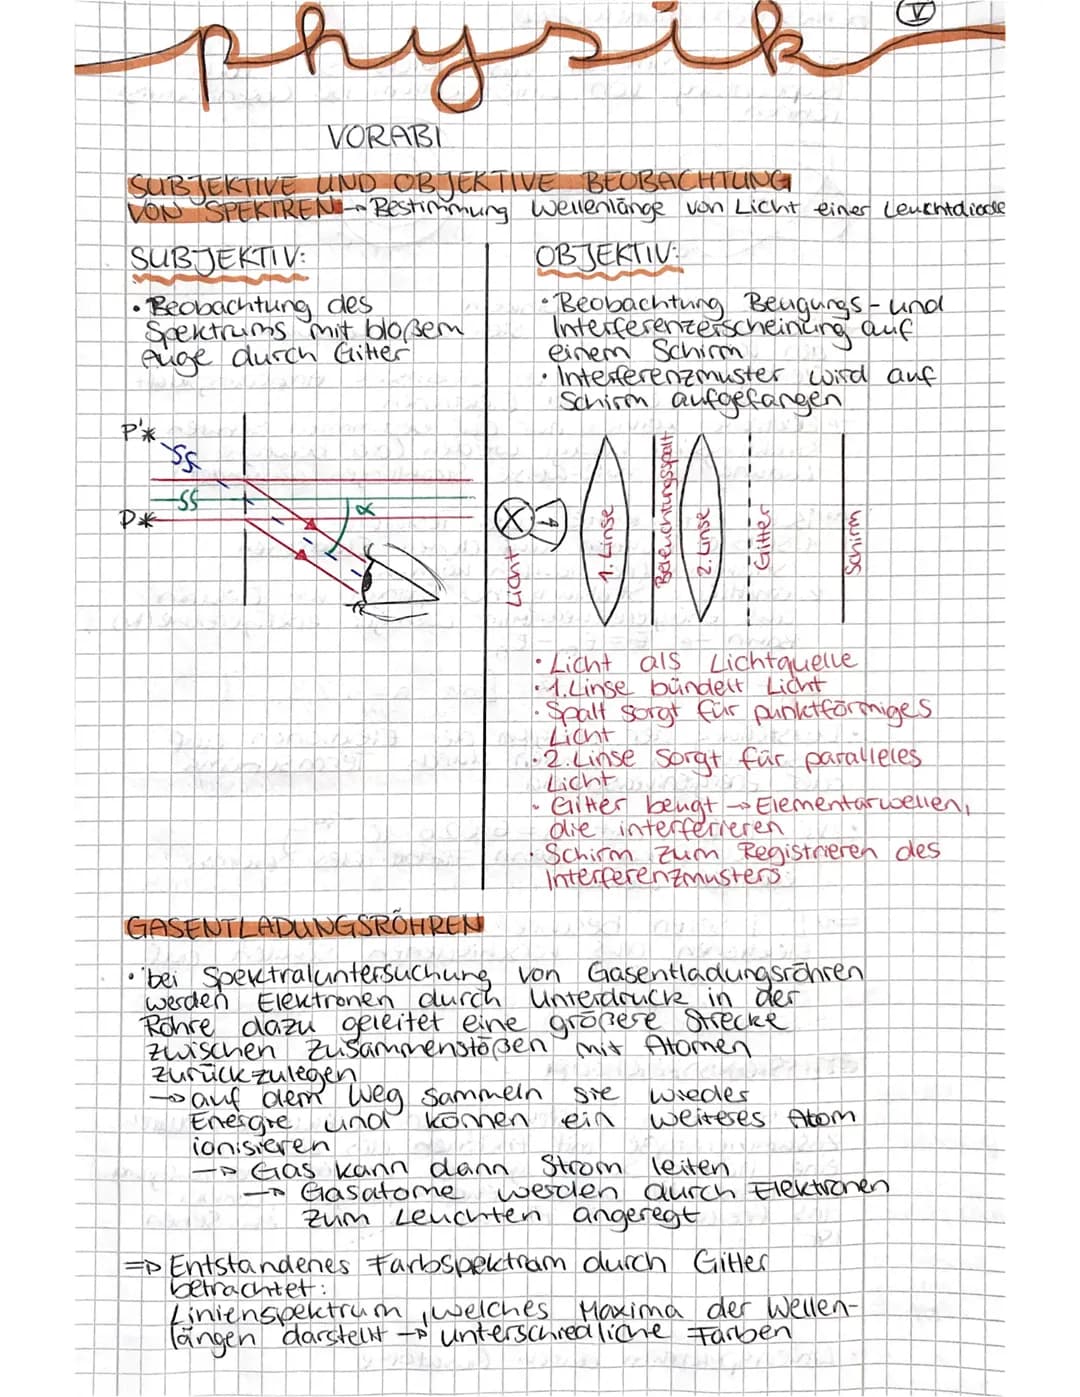 physik
V
VORABI
SUBJEKTIVE UND OBJEKTIVE BEOBACHTUNG
VON SPEKTREN → Bestimmung Wellenlänge von Licht einer Leuchtdiode
SUBJEKTIV:
• Beobachtung des
Spektrums mit bloßem
Auge durch Gitter
P'
SS
SS
P
α
OBJEKTIV:
• Beobachtung Beugungs- und
Interferenzerscheinung auf
einem Schirm
• Interferenzmuster wird auf
Schirm aufgefangen
Licht
1. Linse
Beleuchtungsspalt
2. Linse
Gitter
Schirm
• Licht als Lichtquelle
• 1. Linse bündelt Licht
• Spalt sorgt für punktförmiges
Licht
• 2. Linse sorgt für paralleles
Licht
• Gitter beugt → Elementarwellen,
die interferieren
• Schirm zum Registrieren des
Interferenzmusters
GASENTLADUNGSRÖHREN
• bei Spektraluntersuchung von Gasentladungsröhren
werden Elektronen durch Unterdruck in der
Röhre dazu geleitet eine größere Strecke
zwischen Zusammenstößen mit Atomen
zurückzulegen
→ auf dem Weg sammeln sie wieder
Energie und können ein weiteres Atom
ionisieren
→ Gas kann dann Strom leiten
→ Gasatome werden durch Elektronen
zum Leuchten angeregt
⇒ Entstandenes Farbspektram durch Gitter
betrachtet:
Linienspektrum, welches Maxima der Wellen-
längen darstellt → unterschiedliche Farben